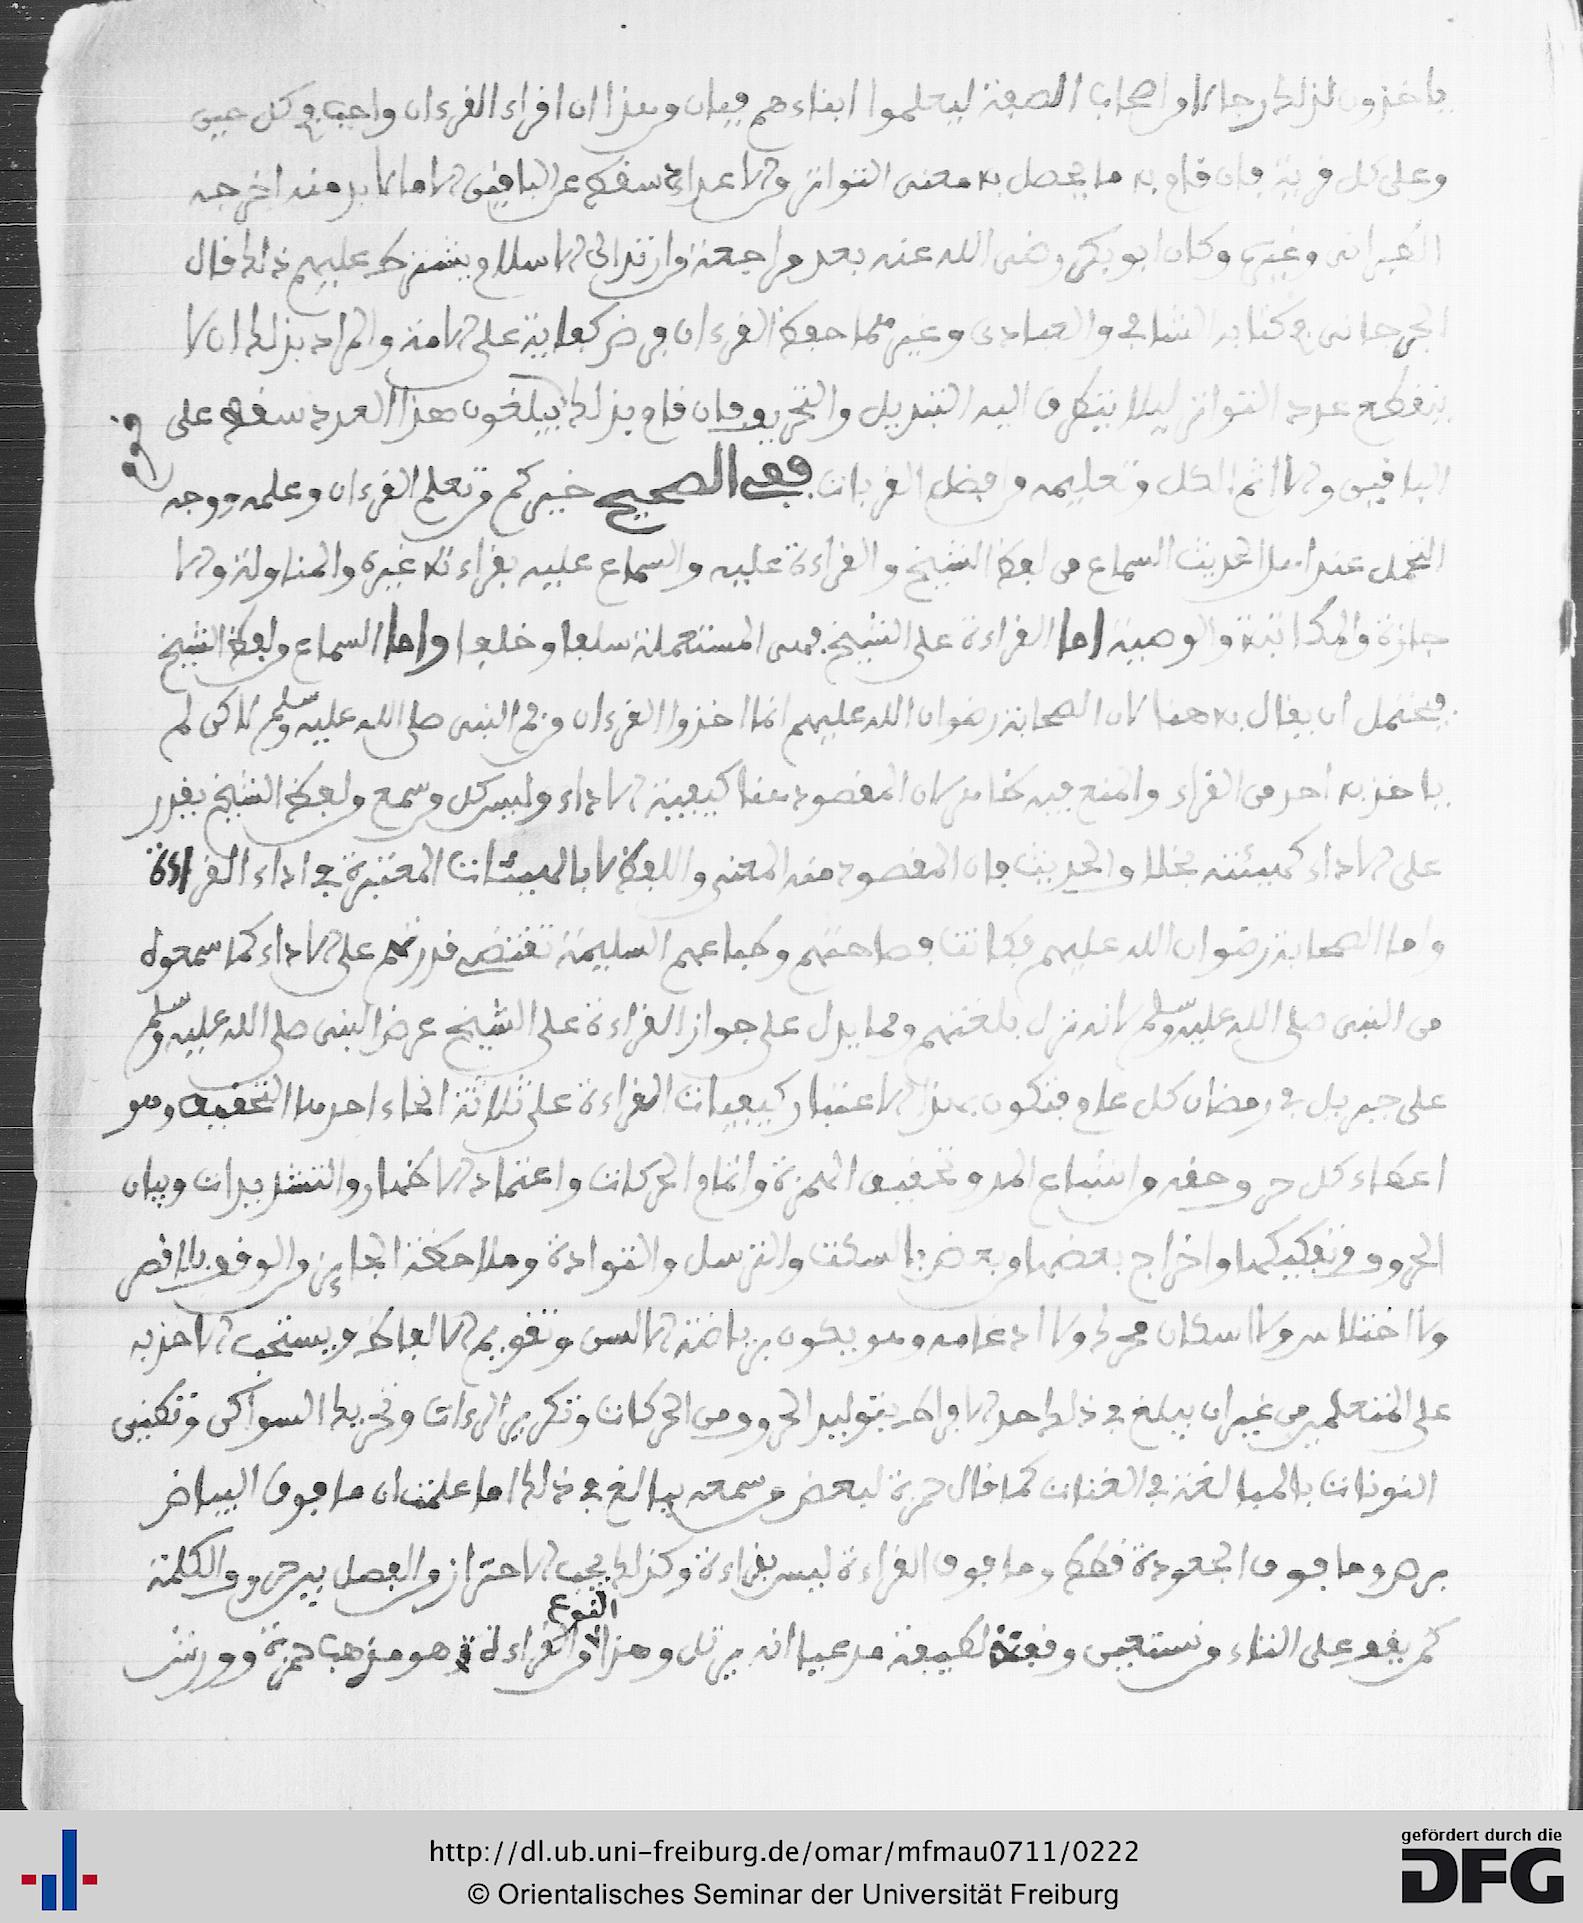 ياخذون لذلك رجالا من اصحاب الصفة ليعلموا ابناءهم فبان من هذا ان اقراء القرءان واجب في كل حين
وعلى كل قرية فان قام به ما يحصل به معنى التواتر والاعداد سقط عن الباقين الا ما لا بد منه اخرجه
الطبراني وغيره وكان ابو بكر رضي الله عنه بعد مراجعة من ارتد الى الاسلام يشترط عليهم ذلك قال
الجرجاني في كتابه الشافي والعبادي وغيرهما حفظ القرءان فرض كفاية على الامة والمراد بذلك ان لا
ينقطع عدد التواتر ليلا يتطرق اليه التبديل والتحريف فان قام بذلك من يبلغون هذا العدد سقط على
الباقين والا اثم الكل وتعليمه من افضل القربات ففي الصحيح خيركم من تعلم القرءان وعلمه ووجه
التحمل عند اهل الحديث السماع من لفظ الشيخ والقراءة عليه والسماع عليه بقراءة غيره والمناولة والا
جازة والمكاتبة والوصية اما القراءة على الشيخ فهي المستعملة سلفا وخلفا واما السماع من لفظ الشيخ
فيحتمل ان يقال به هنا لان الصحابة رضوان الله عليهم انما اخذوا القرءان من في النبي صلى الله عليه وسلم لاكن لم
ياخذ به احد من القراء والمنع فيه ظاهر لان المقصود هنا كيفية الاداء وليس كل من سمع من لفظ الشيخ يقدر
على الاداء كهيئته بخلاف الحديث فان المقصود منه المعنى واللفظ لا بالهيئات المعتبرة في اداء القراءة
واما الصحابة رضوان الله عليهم فكانت فصاحتهم وطباعهم السليمة تقتضي قدرتهم على الاداء كما سمعوه
من النبي صلى الله عليه وسلم لانه نزل بلغتهم ومما يدل على جواز القراءة على الشيخ عرض النبي صلى الله عليه وسلم
على جبريل في رمضان كل عام فتكون بهذا الاعتبار كيفيات القراءة على ثلاثة انحاء احدها التحقيق وهو
اعطاء كل حرف حقه من اشباع المد وتحقيق الهمزة واتمام الحركات واعتماد الاظهار والتشديدات وبيان
الحروف وتفكيكها واخراج بعضها من بعض بالسكت والترسل والتوادة وملاحظة الجائز من الوقف بلا قصر
ولا اختلاس ولا اسكان محرك ولا ادغامه وهو يكون برياضة الالسن وتقويم الالفاظ ويستحب الاخذ به
على المتعلمين من غير ان يبلغ في ذلك حد الافراط بتوليد الحروف من الحركات وتكرير الراءات وتحريك السواكن وتطنين
النونات بالمبالغة في الغنات كما قال حمزة لبعض من سمعه يبالغ في ذلك اما علمت ان ما فوق البياض
برص وما فوق الجعودة قطط وما فوق القراءة ليس بقراءة وكذلك يجب الاحتراز من الفصل بين حروف الكلمة
كمن يقف على التاء من نستعين وقفة لطيفة مدعيا انه يرتل وهذا النوع من القراءة هو مذهب حمزة وورش
http://dl.ub.uni-freiburg.de/omar/mfmau0711/0222
© Orientalisches Seminar der Universität Freiburg
gefördert durch die
DFG